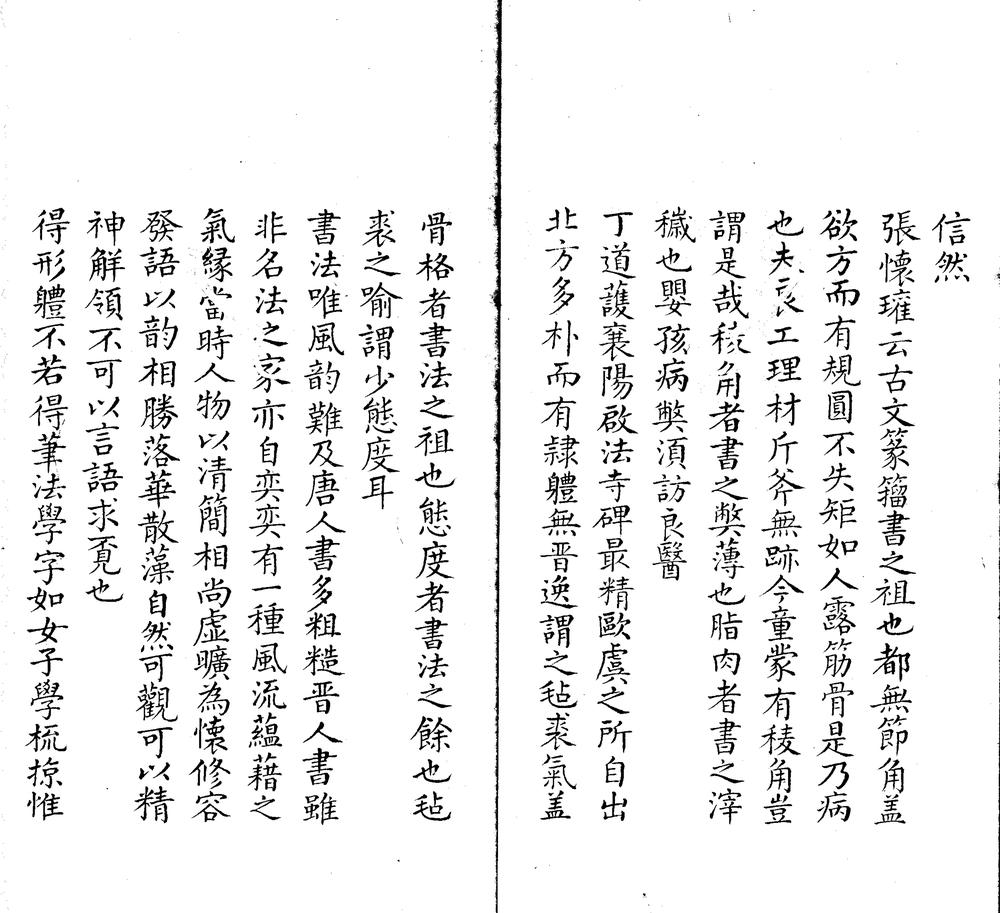 信然
張懷瓘云古文篆籀書之祖也都無節角盖
欲方而有規圓不失矩如人露筋骨是乃病
也夫良工理材斤斧無跡今童蒙有稜角豈
謂是哉稜角者書之獘薄也脂肉者書之滓
穢也嬰孩病獘湏訪良醫
丁道護襄陽啟法寺碑最精歐虞之所自出
北方多朴而有隸體無晋逸謂之毡裘氣盖
骨格者書法之祖也態度者書法之餘也毡
裘之喻謂少態度耳
書法唯風韵難及唐人書多粗糙晋人書雖
非名法之家亦自奕奕有一種風流蘊藉之
氣縁當時人物以清簡相尚虛曠為懷修容
發語以韵相勝落華散藻自然可觀可以精
神解領不可以言語求覔也
得形體不若得筆法學字如女子學梳掠惟